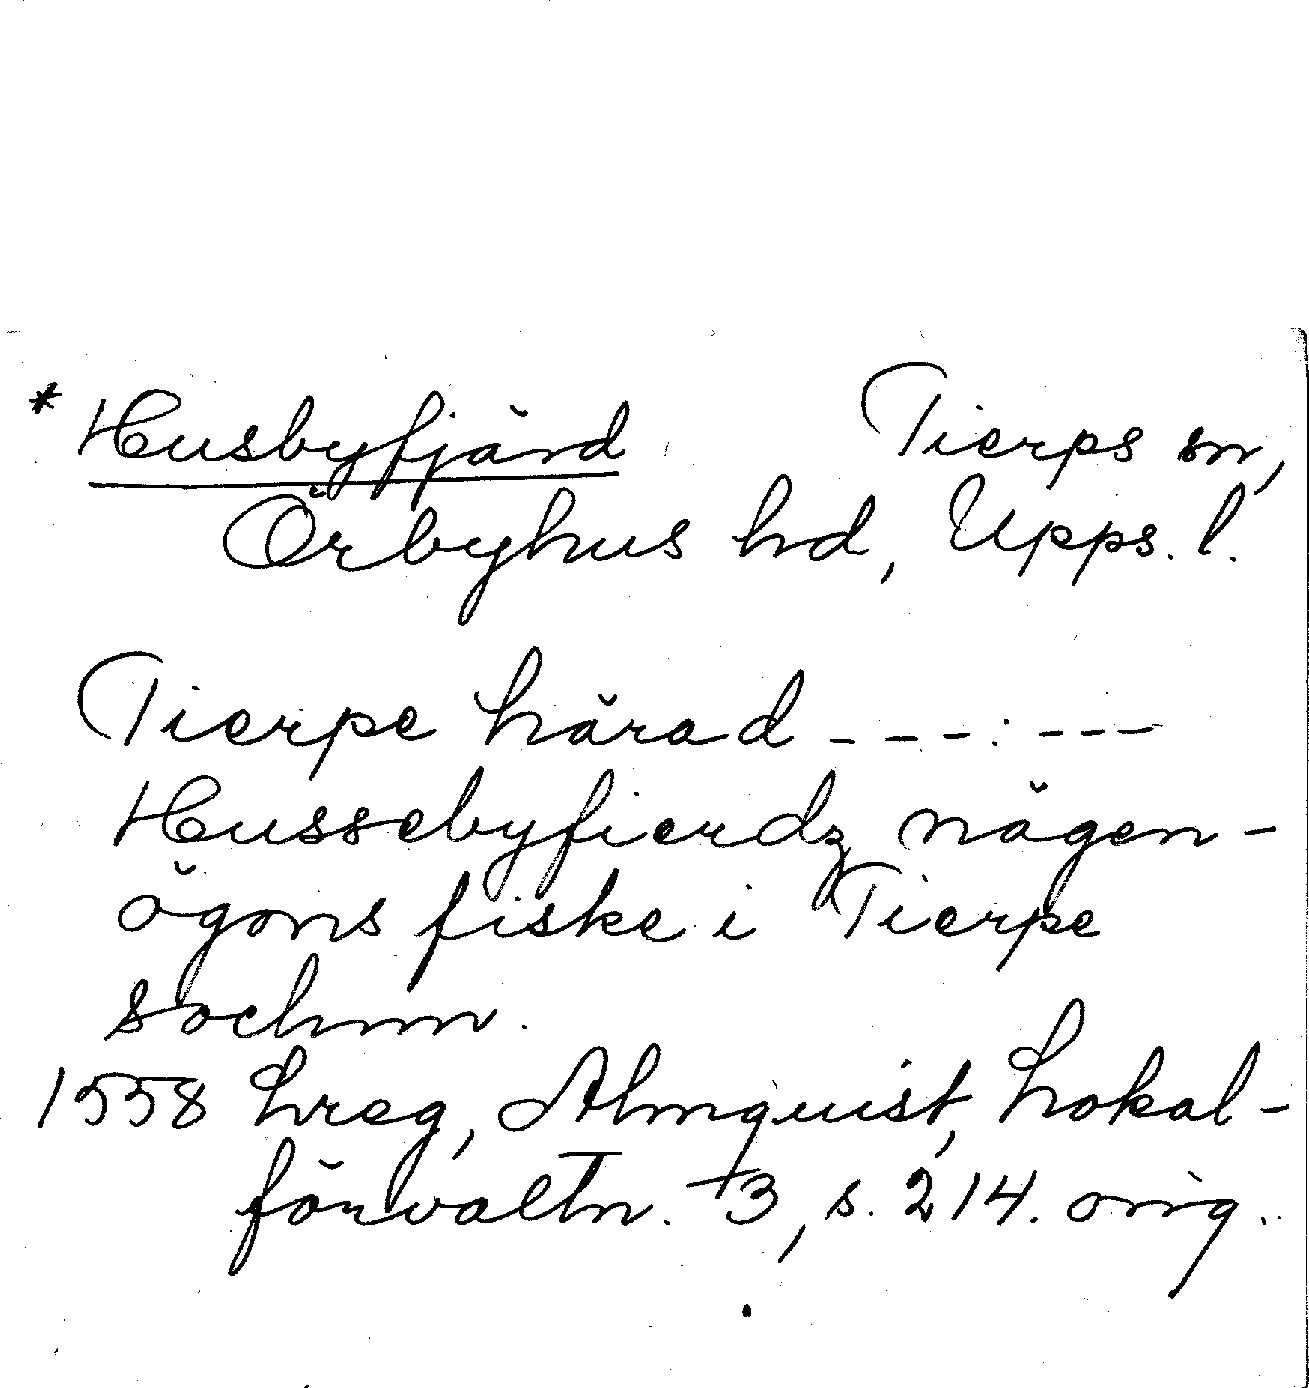 * Husbyfjärd Tierps sn,
Örbyhus hd, Upps. l.
Tierpe härad - - - . - - -
Hussebyfierdz någen-
ögons fiske i Tierpe
sochnn.
1558 Lreg, Almquist, Lokal-
förvaltn. 3, s. 214. orig.